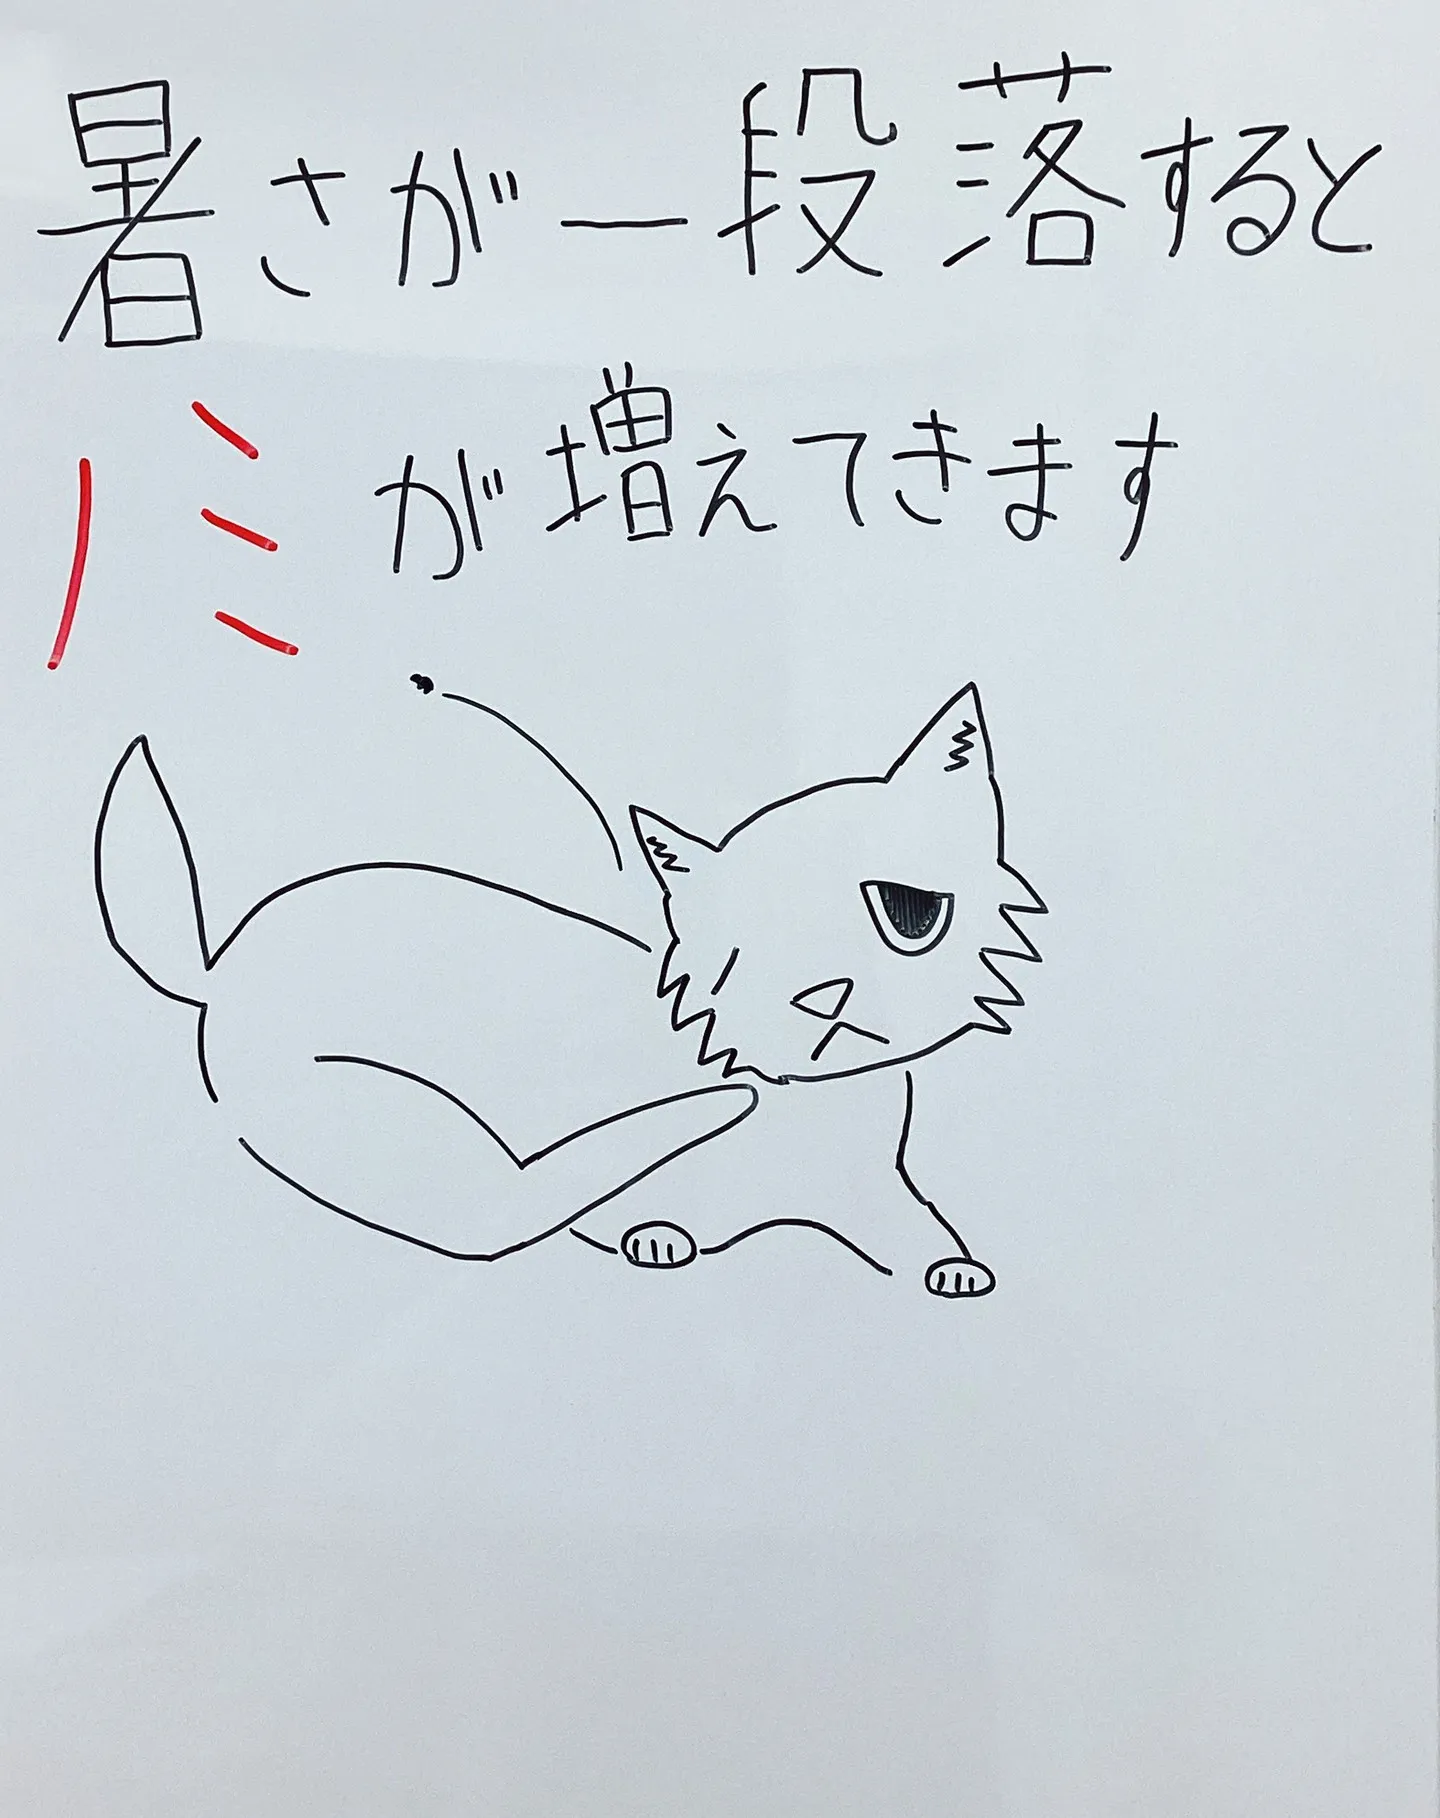 暑さが一段落すると
ノミが増えてきます